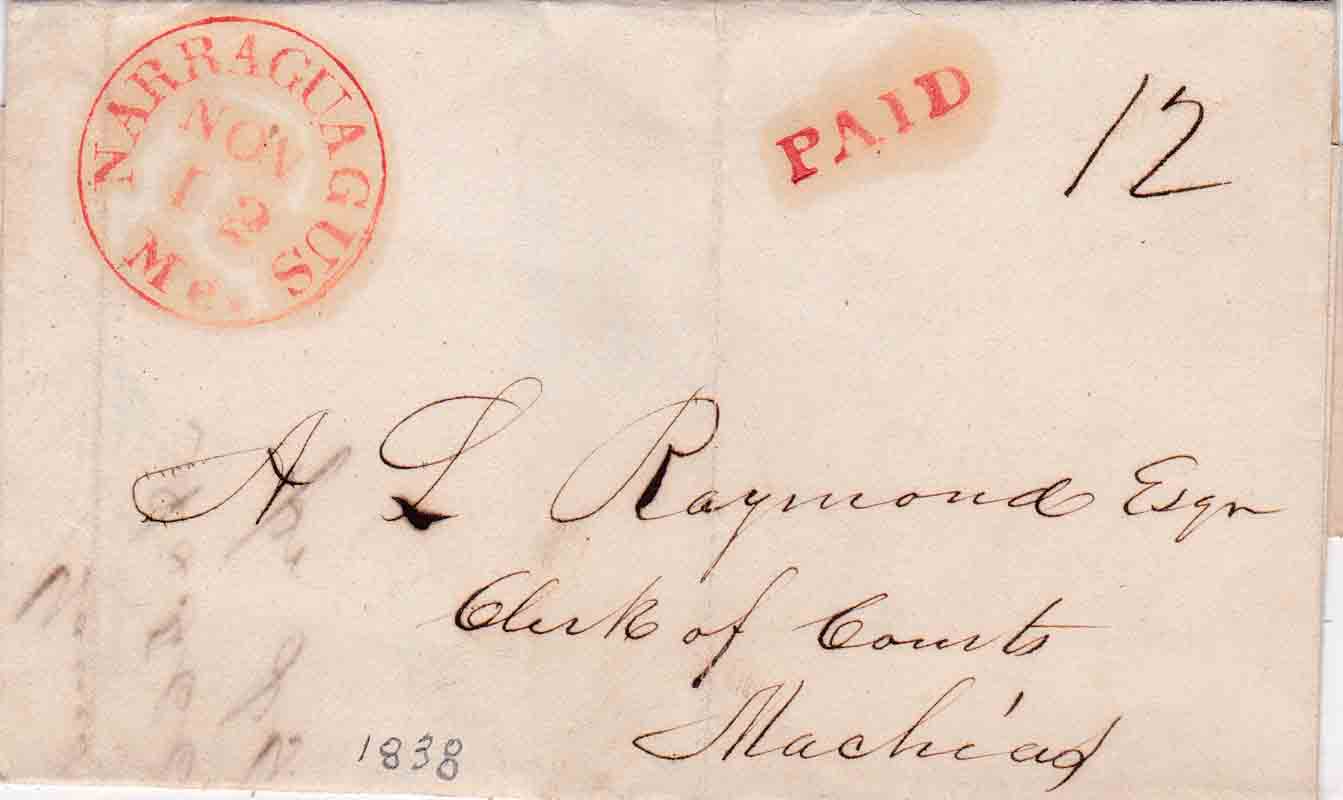 NARRAGUAGUS Me.
NOV
12
PAID
12
A L Raymond Esqr
Clerk of Courts
Machias
1838